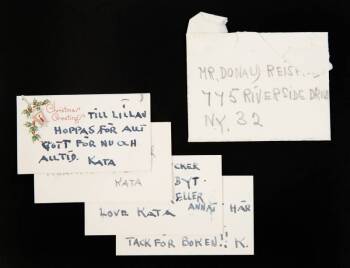 Christmas
Greetings
TILL LILLAN
HOPPAS FÖR ALLT
GOTT FÖR NU OCH
ALLTID. KATA
MR. DONALD
775 RIVERSIDE DRIVE
NY. 32
KATA
BYT
ELLER
ANNAT HÄR
LOVE KATA
TACK FÖR BOKEN!! K.